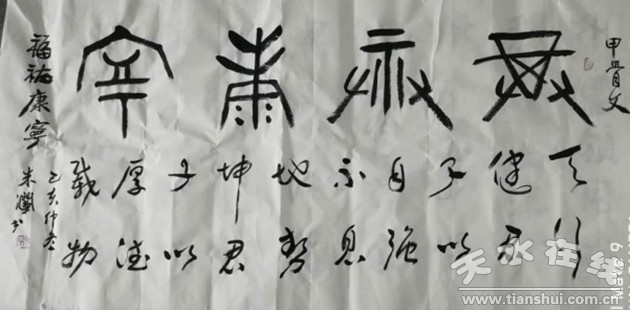 甲骨文
福祐康寧
天行
健君
子以
自强
不息
地勢
坤君
子以
厚德
載物
福祐康寧
己亥仲冬
书
天水在线
www.tianshui.com.cn